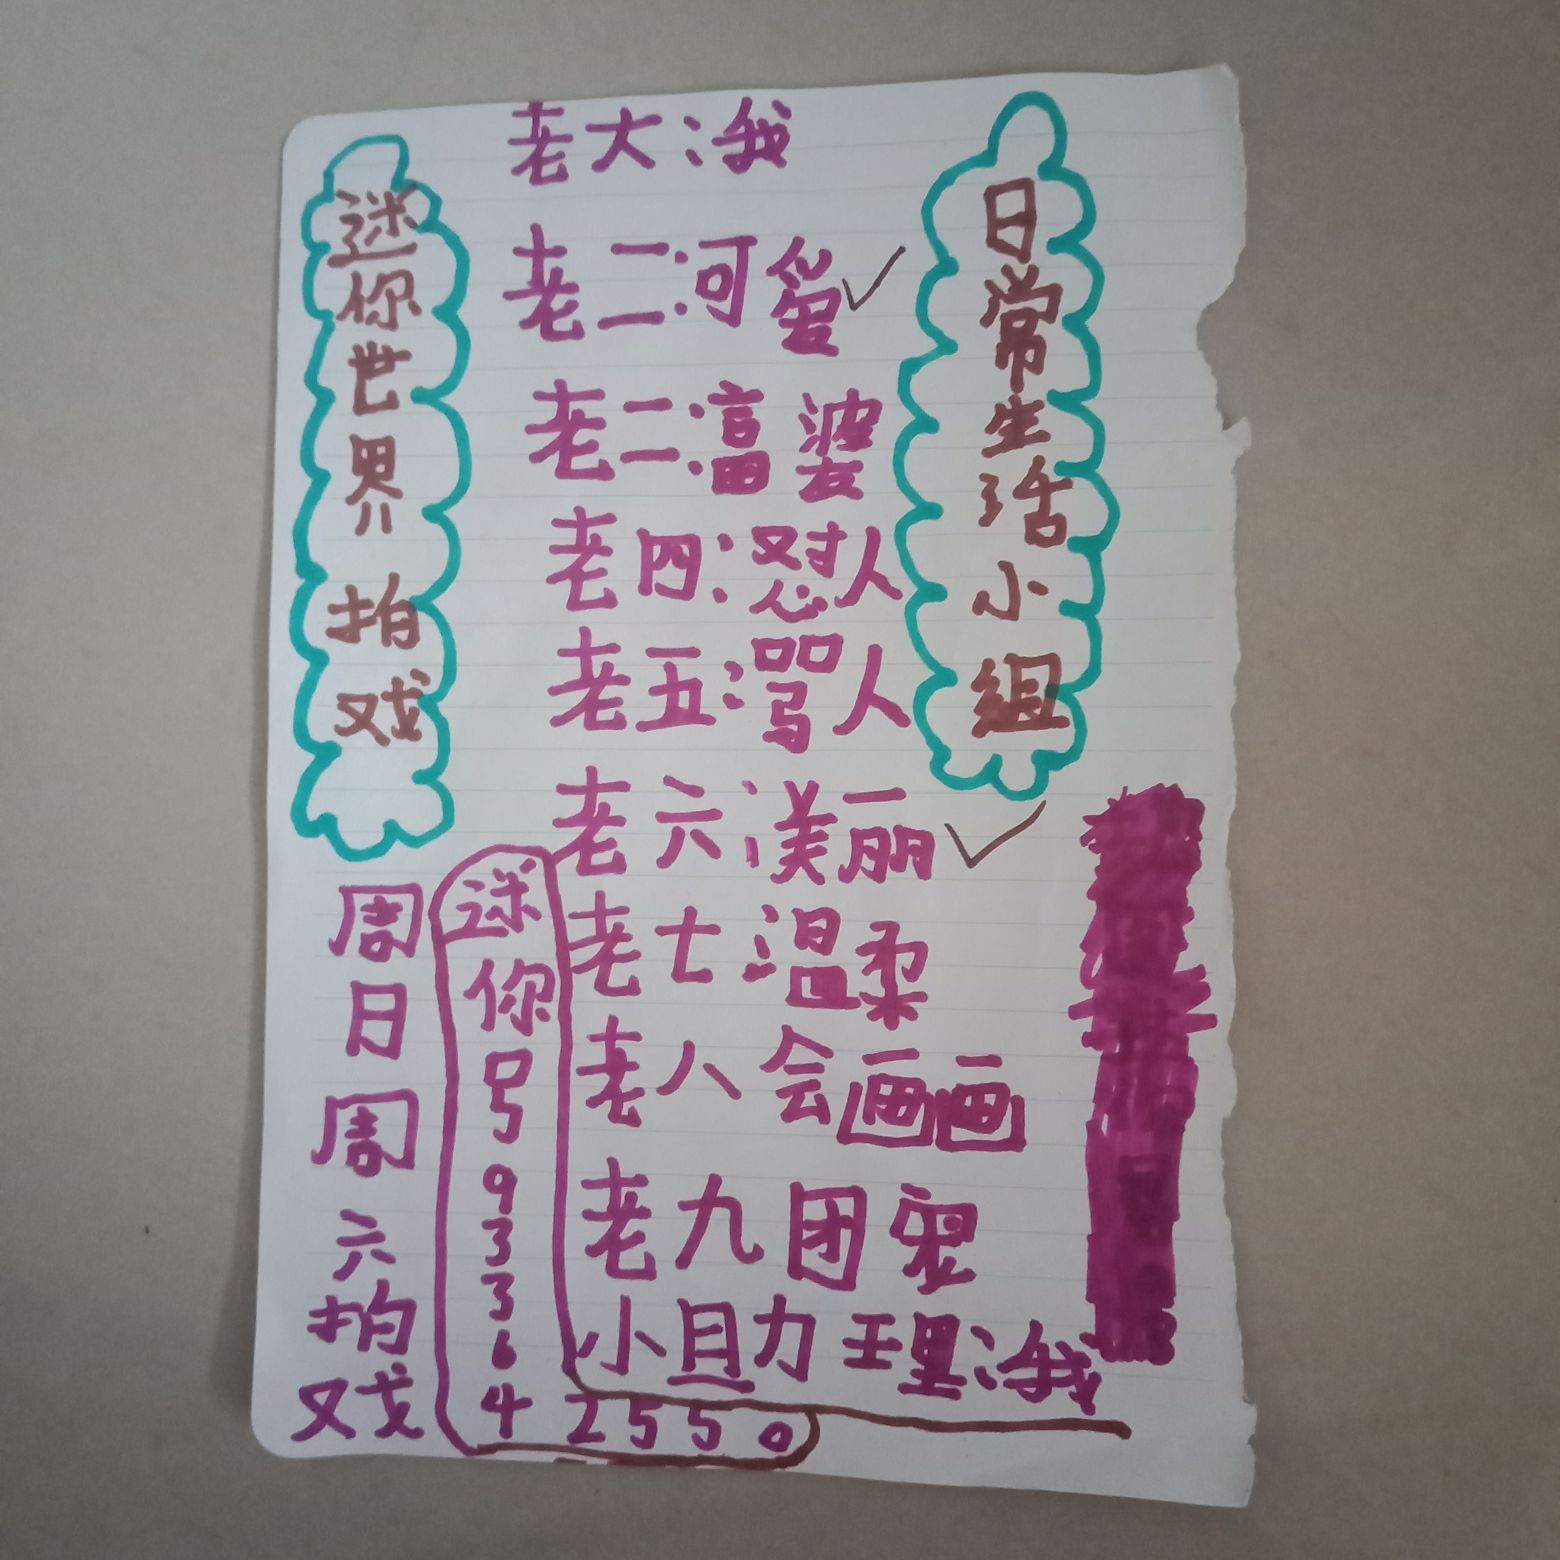 迷你世界拍戏
老大:我
老二:可爱
老二:富婆
老四:怼人
老五:骂人
老六:美丽
老七:温柔
老八会画画
老九团宠
小助理:我
日常生活小组
周日周六拍戏
迷你号933642550